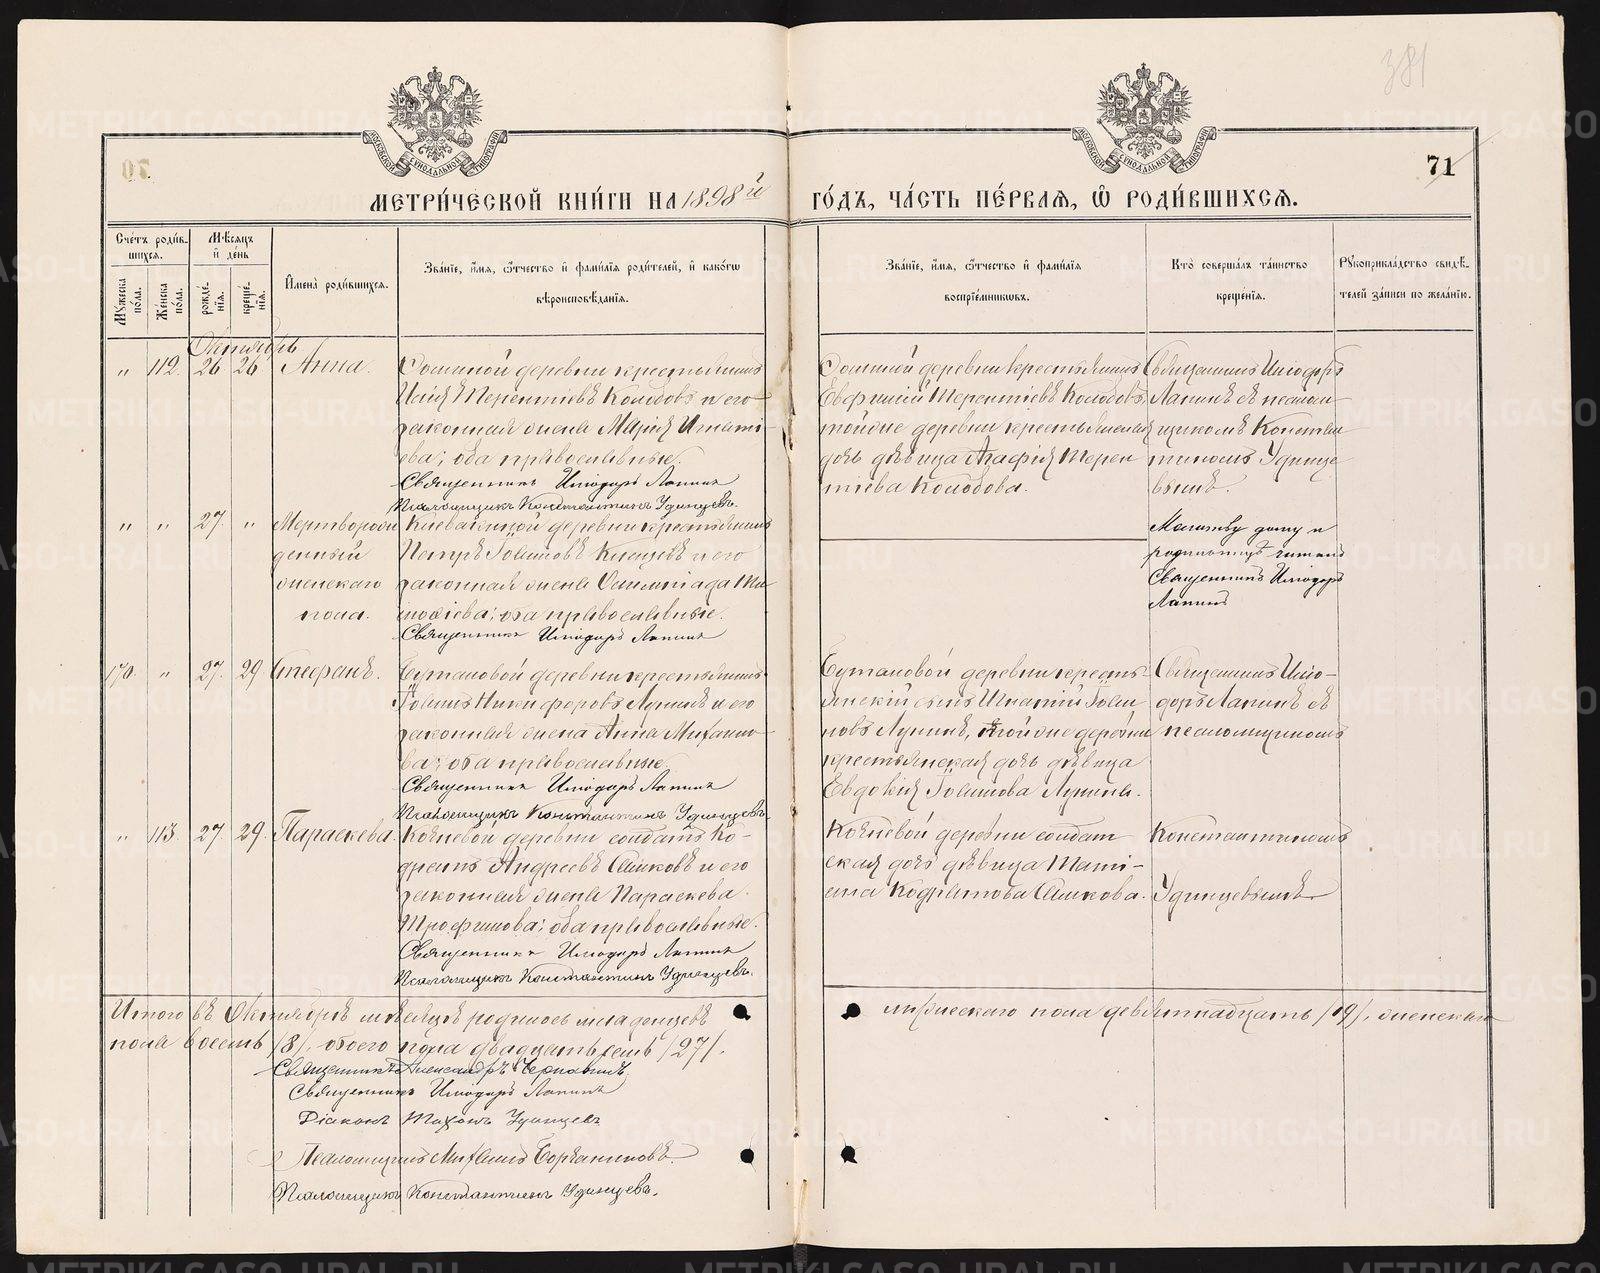 381
71
МЕТРИЧЕСКОЙ КНИГИ НА 1898й ГОДЪ, ЧАСТЬ ПЕРВАЯ, Ѡ РОДИВШИХСЯ.
Счетъ родившихся.
Мужеска пола.
Женска пола.
Мѣсяцъ и день
рожденія.
крещенія.
Имена родившихся.
Званіе, имя, ѿчество и фамилія родителей, и какогѡ
вѣроисповѣданія.
Званіе, имя, ѿчество и фамилія
воспріемниковъ.
Кто совершалъ таинство
крещенія.
Рукоприкладство свидѣтелей записи по желанію.
Октябрь
" 112. 26 26 Анна.
деревни крестьянинъ
Исаія Терентіевъ Колобовъ и его
законная жена Марія Игнатіева; оба православные.
Священникъ Исидоръ Лапинъ
Псаломщикъ Константинъ Удинцевъ.
деревни крестьянинъ
Евфимій Терентіевъ Колобовъ
той же деревни крестьянская
дочь дѣвица Агафія Терентіева Колобова.
Священникъ Исидоръ
Лапинъ съ псаломщикомъ Константиномъ Удинцевымъ.
" " 27. " Мертворожденный
женскаго
пола.
деревни крестьянинъ
Петръ и его
законная жена Олимпіада
оба православные.
Священникъ Исидоръ Лапинъ
Молитву дому и
родильницѣ читалъ
Священникъ Исидоръ
Лапинъ
170. " 27. 29 Стефанъ.
Бутаковой деревни крестьянинъ
Никифоровъ Лупинъ и его
законная жена Анна Михаилова; оба православные.
Священникъ Исидоръ Лапинъ
Псаломщикъ Константинъ Удинцевъ.
Бутаковой деревни крестьянскій сынъ Игнатій
Лупинъ, той же деревни
крестьянская дочь дѣвица
Евдокія Лупина.
Священникъ Исидоръ Лапинъ съ
псаломщикомъ
Константиномъ
Удинцевымъ
" 113. 27. 29. Параскева.
деревни солдатъ Кодратъ Андреевъ и его
законная жена Параскева
Трофимова; оба православные.
Священникъ Исидоръ Лапинъ
Псаломщикъ Константинъ Удинцевъ.
деревни солдатская дочь дѣвица Татіана Кодратова
Итого въ Октябрѣ мѣсяцѣ родилось младенцевъ мужескаго пола девятнадцать /19/, женскаго
пола восемь /8/, обоего пола двадцать семь /27/.
Священникъ Александръ
Священникъ Исидоръ Лапинъ
Діаконъ Удинцевъ
Псаломщикъ Михаилъ
Псаломщикъ Константинъ Удинцевъ.
METRIKI.GASO-URAL.RU